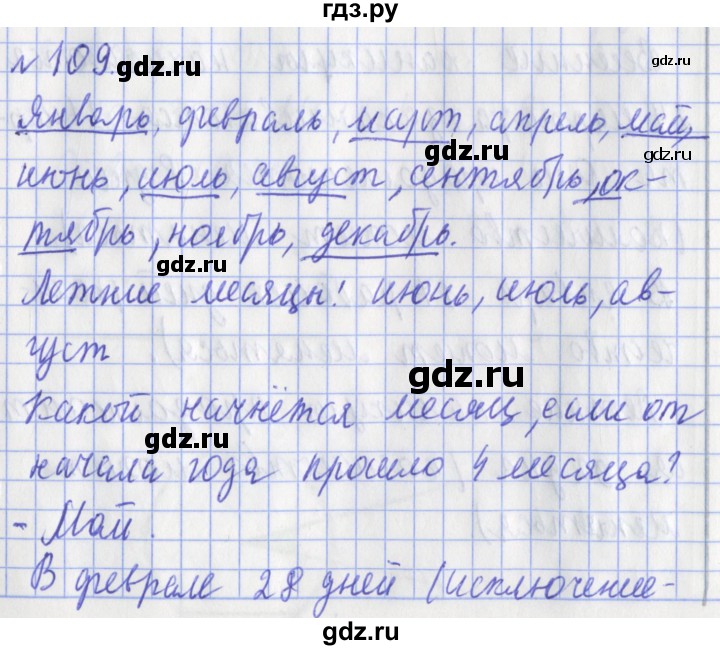 гдз.ру
№ 109.
gdz.ru
gdz.ru
Январь, февраль, март, апрель, май,
gdz.ru
gdz.ru
июнь, июль, август, сентябрь, ок-
тябрь, ноябрь, декабрь.
gdz.ru
Летние месяцы: июнь, июль, ав-
густ
gdz.ru
Какой начнётся месяц, если от
gdz.ru
начала года прошло 4 месяца?
- Май.
В феврале 28 дней (исключение-
gdz.ru
gdz.ru